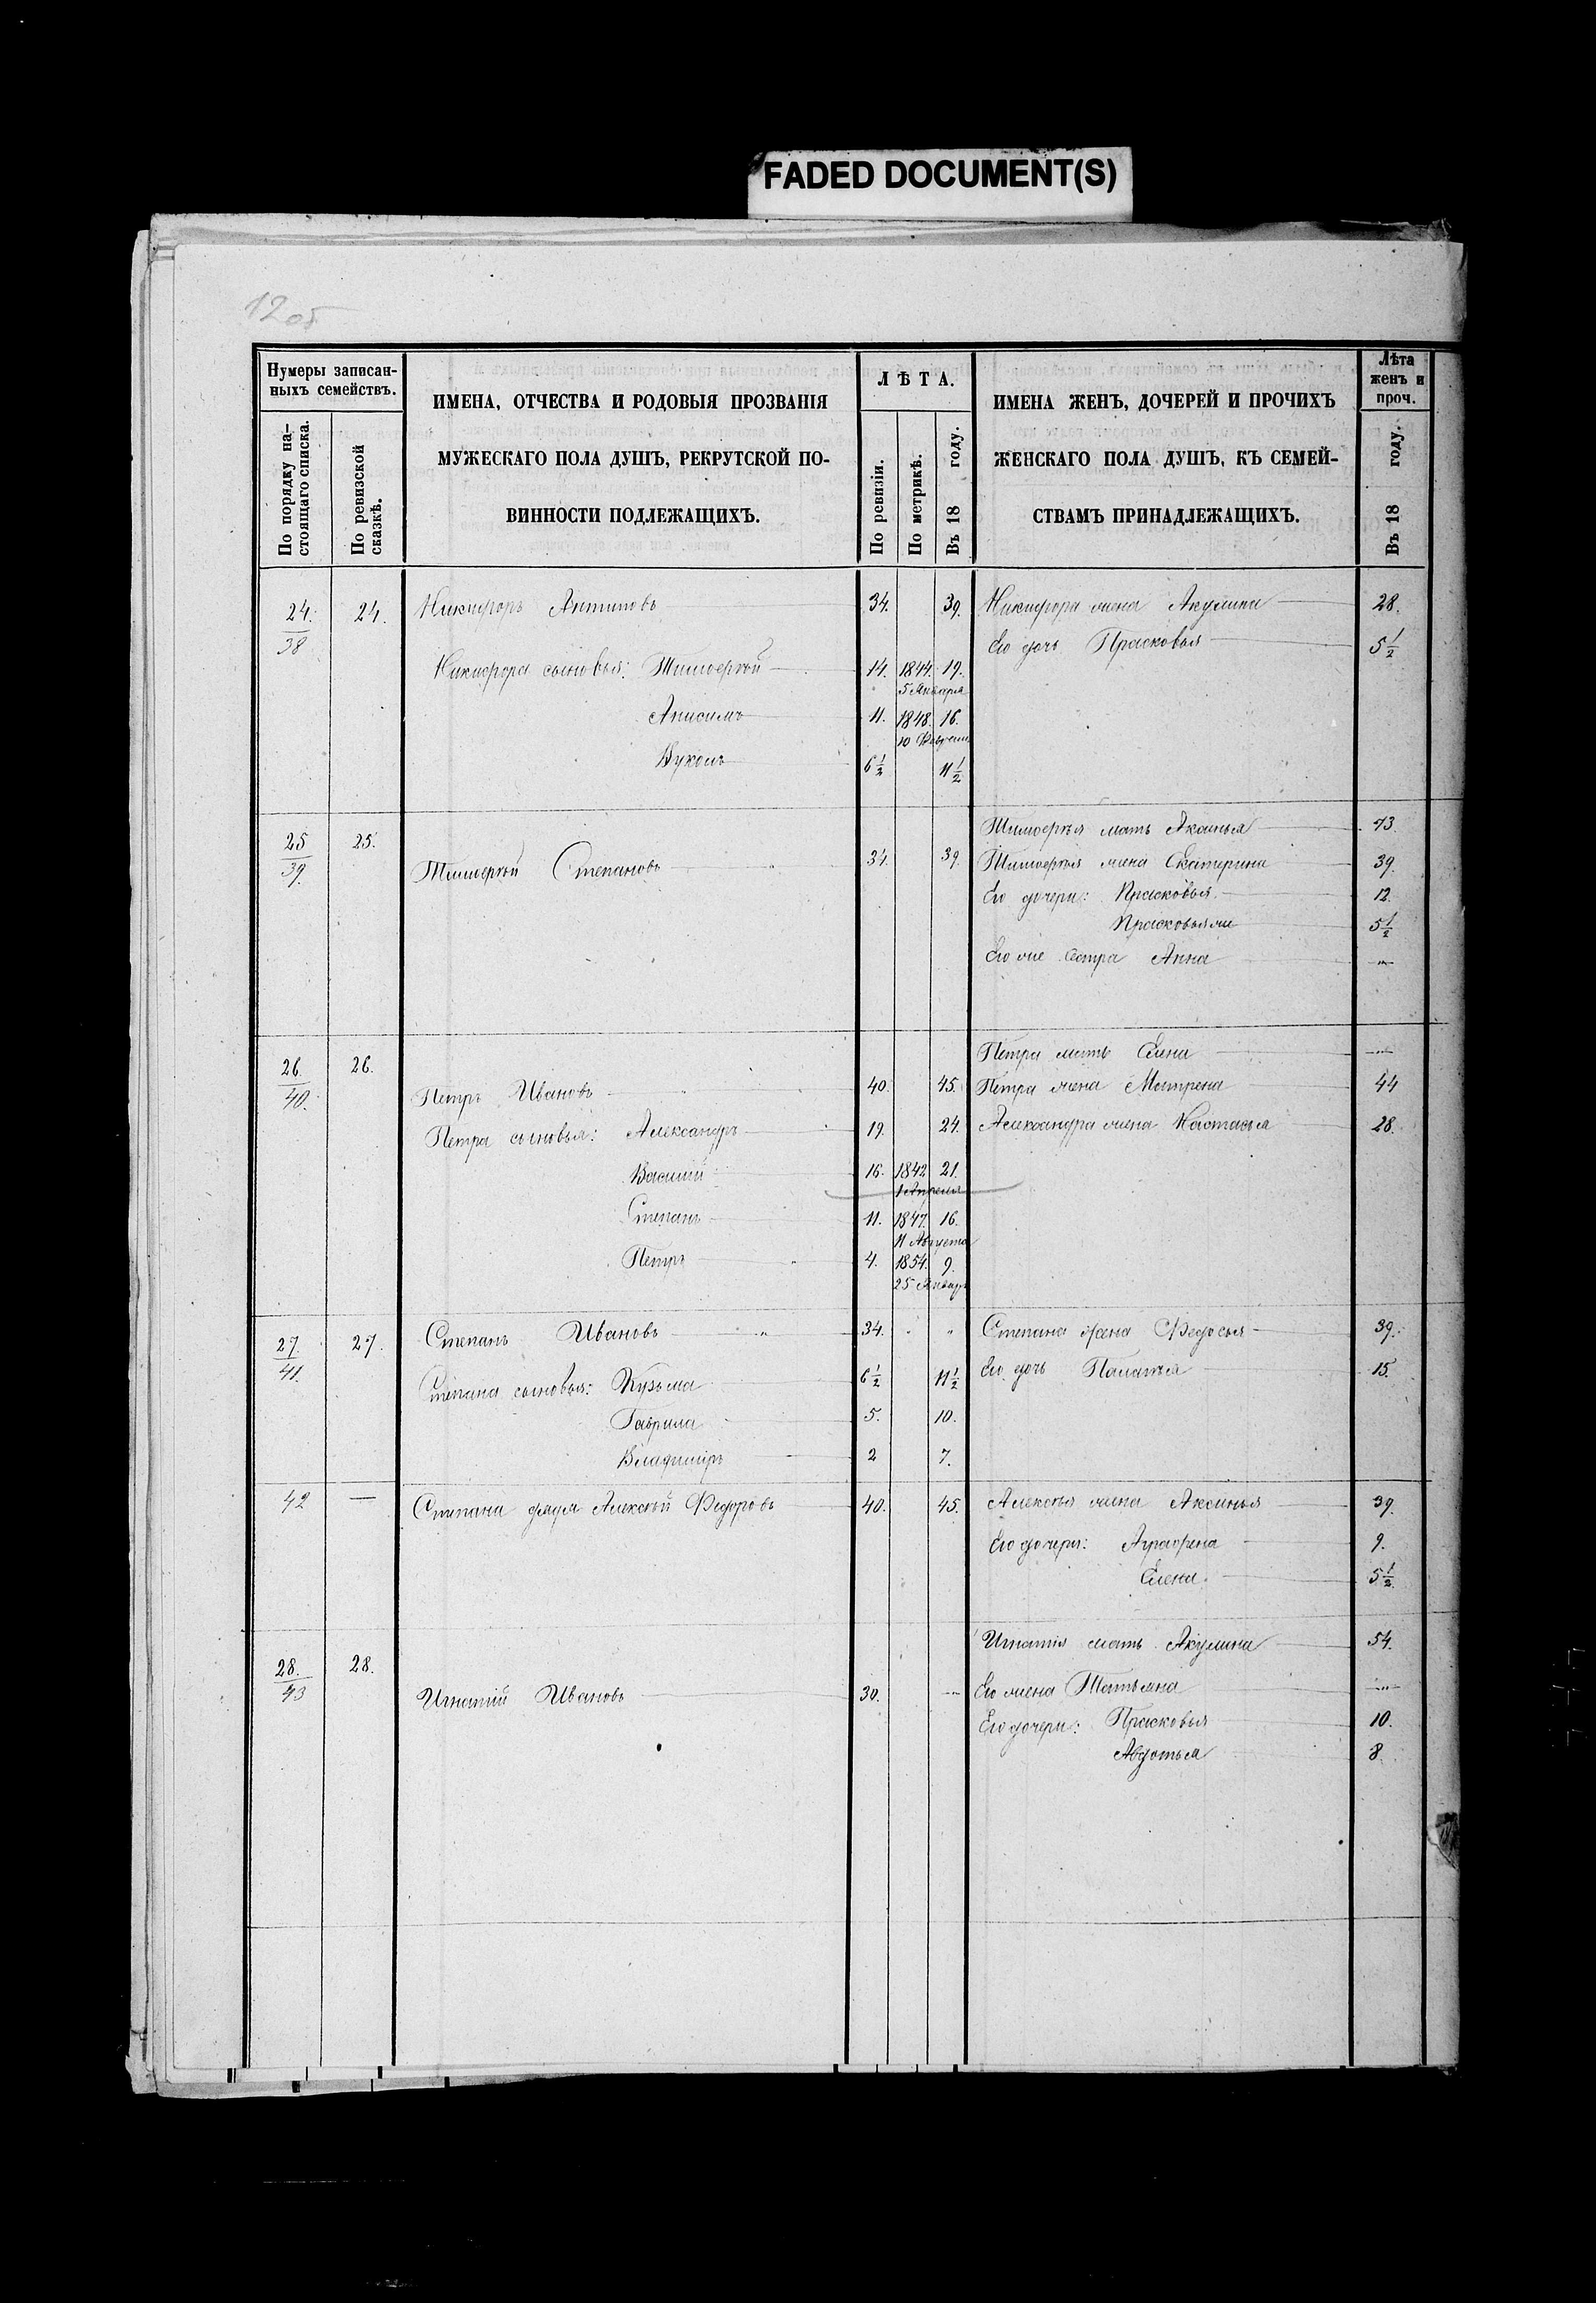 FADED DOCUMENT(S)
12 об
Нумеры записан-
ныхъ семействъ.
По порядку на-
стоящаго списка.
По ревизской
сказкѣ.
ИМЕНА, ОТЧЕСТВА И РОДОВЫЯ ПРОЗВАНІЯ
МУЖЕСКАГО ПОЛА ДУШЪ, РЕКРУТСКОЙ ПО-
ВИННОСТИ ПОДЛЕЖАЩИХЪ.
ЛѢТА.
По ревизіи.
По метрикѣ.
Въ 18 году.
ИМЕНА ЖЕНЪ, ДОЧЕРЕЙ И ПРОЧИХЪ
ЖЕНСКАГО ПОЛА ДУШЪ, КЪ СЕМЕЙ-
СТВАМЪ ПРИНАДЛЕЖАЩИХЪ.
Лѣта
женъ и
проч.
Въ 18 году.
24. 24. Никифоръ Антиповъ 34. 39. Никифора жена Акулина 28.
38
Его дочь Прасковья 5 1/2
Никифора сыновья: Тимоѳей 14. 1844. 19.
5 Января
Анисимъ 11. 1848. 16.
10 Февраля
Вуколъ 6 1/2 11 1/2
Тимоѳея мать Аксинья 73.
25 25. Тимоѳей Степановъ 34. 39. Тимоѳея жена Екатерина 39.
39.
Его дочери: Прасковья 12.
Прасковья же 5 1/2
Его же сестра Анна "
Петра мать Елена "
26. 26. Петръ Ивановъ 40. 45. Петра жена Матрена 44
40.
Петра сыновья: Александръ 19. 24. Александра жена Настасья 28.
Василій 16. 1842 21.
1 Апреля
Степанъ 11. 1847. 16.
11 Августа
Петръ 4. 1854. 9.
25 Январ
27. 27. Степанъ Ивановъ " 34. " " Степана жена Федосья 39.
41.
Степана сыновья: Кузьма 6 1/2 11 1/2 Его дочь Палагея 15.
Гаврила 5. 10.
Владиміръ 2 7.
42 — Степана дядя Алексѣй Федоровъ 40. 45. Алексѣя жена Аксинья 39.
Его дочери: Аграфена 9.
Елена 5 1/2
Игнатія мать Акулина 54.
28. 28. Игнатій Ивановъ 30. " Его жена Татьяна "
43
Его дочери: Прасковья 10.
Авдотья 8.